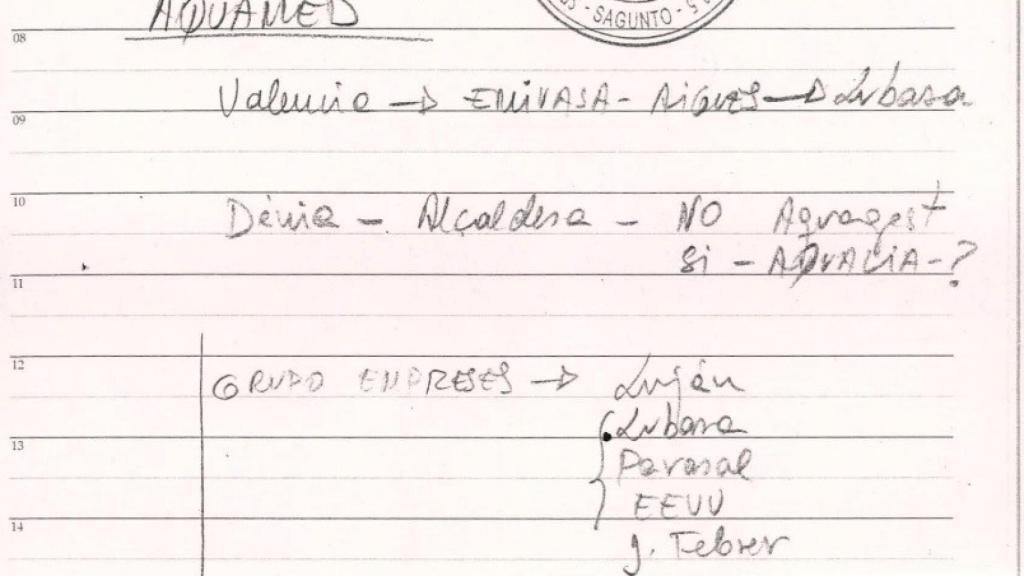 AQUAMED
- SAGUNTO - 5
08
Valencia → EMIVASA - AIGUES → Lubasa
09
10
Dénia - Alcaldesa - NO Aquagest
SI - AQUALIA - ?
11
12
GRUPO EMPRESES → Luján
Lubasa
13
Pavasal
EEVV
14
J. Febrer